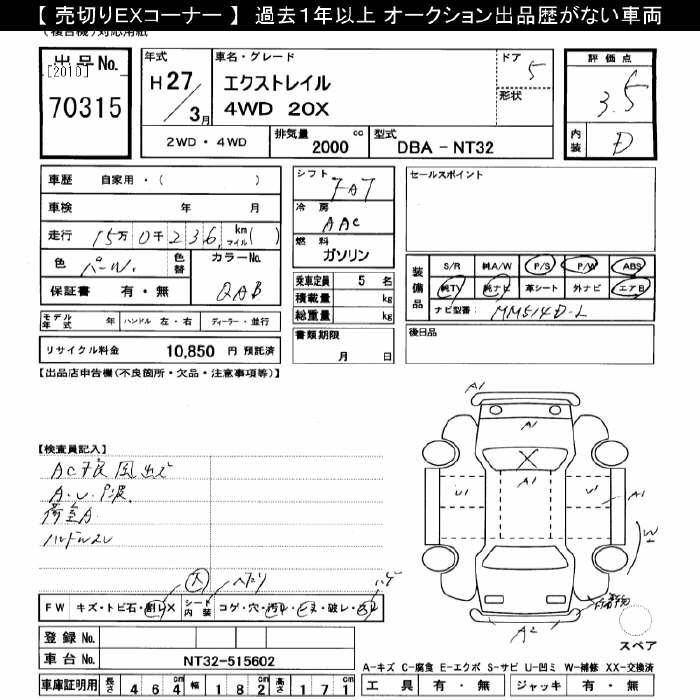 【 売切りEXコーナー 】 過去1年以上 オークション出品歴がない車両
(複合機)対応用紙
出品 No.
[2010]
70315
年式
H 27 / 3月
車名・グレード
エクストレイル
4WD 20X
ドア
5
形状
2WD ・ 4WD
排気量
2000 cc
型式
DBA - NT32
評価点
3.5
内装
D
車歴 自家用・( )
車検 年 月
走行 15万 0千 2 3 6 km マイル( )
色 パール
色替
カラーNo.
QAB
保証書 有・無
モデル年式 年 ハンドル 左・右 ディーラー・並行
リサイクル料金 10,850 円 預託済
シフト
7AT
冷房
AAC
燃料
ガソリン
乗車定員 5 名
積載量 kg
総重量 kg
書類期限
月 日
セールスポイント
装備品
S/R 純A/W P/S P/W ABS
純TV 純ナビ 革シート 外ナビ エアB
ナビ型番: MM514D-L
後日品
【出品店申告欄(不良箇所・欠品・注意事項等)】
【検査員記入】
荷室A
FW キズ・トビ石・割レX
シート内装 コゲ・穴・汚レ・破レ・スレ
登録 No.
車台 No. NT32-515602
車庫証明用 長さ 4 6 4cm 幅 1 8 2cm 高さ 1 7 1cm
A1
A1
A1
U1
U1
A1
W1
A2
スペア
A-キズ C-腐食 E-エクボ S-サビ U-凹ミ W-補修 XX-交換済
工具 有・無 ジャッキ 有・無